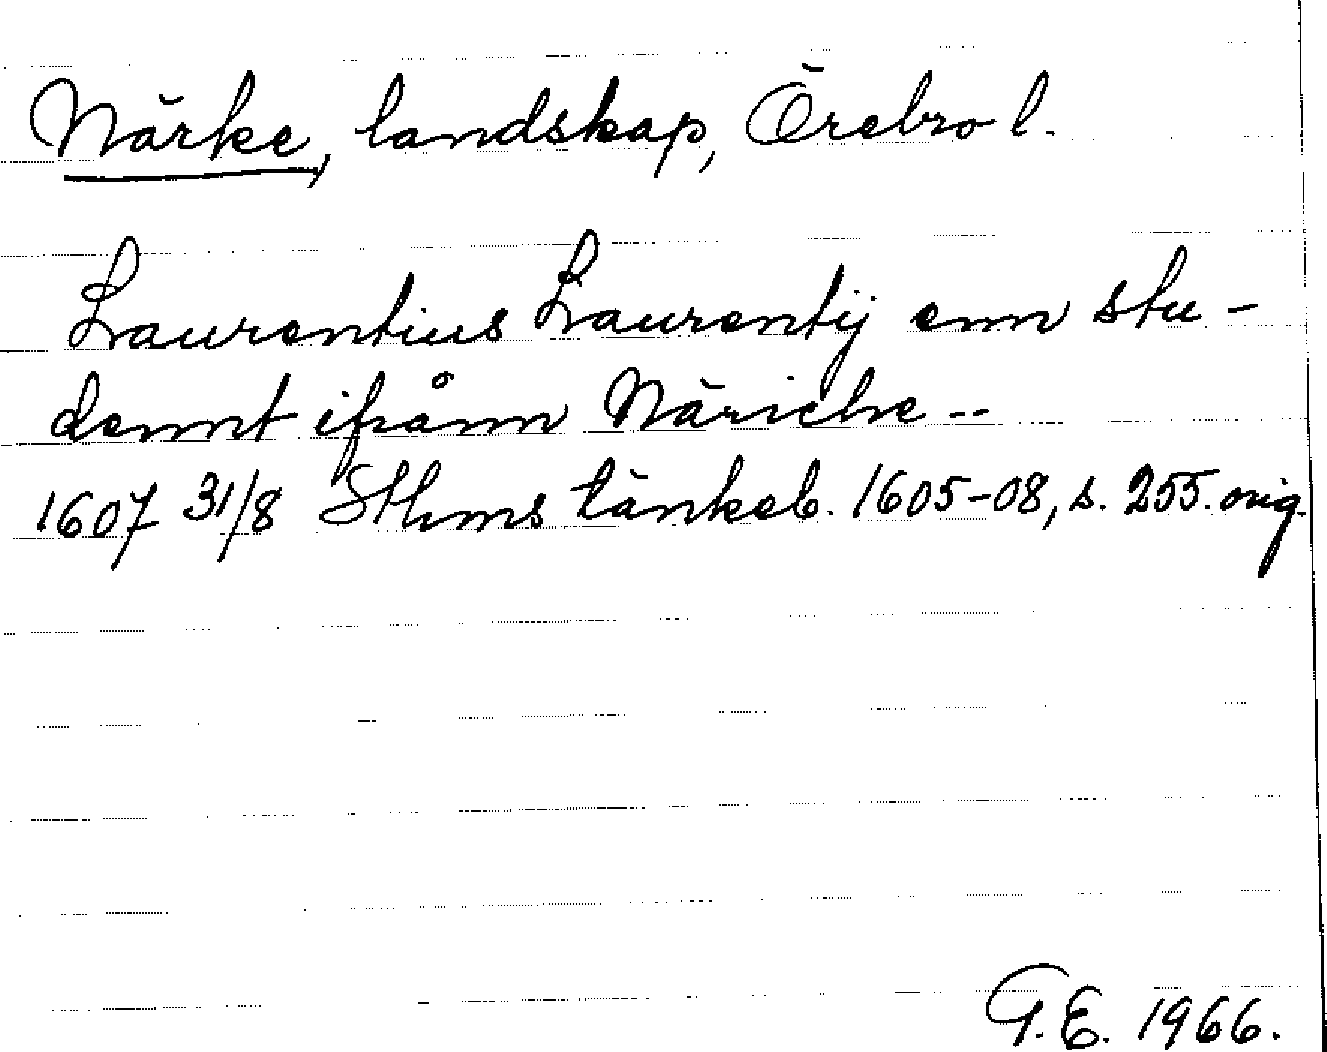 Närke, landskap, Örebro l.
Laurentius Laurentij enn stu-
dennt ifrånn Näricke --
1607 31/8 Sthms tänkeb. 1605-08, s. 255. orig.
G.E. 1966.